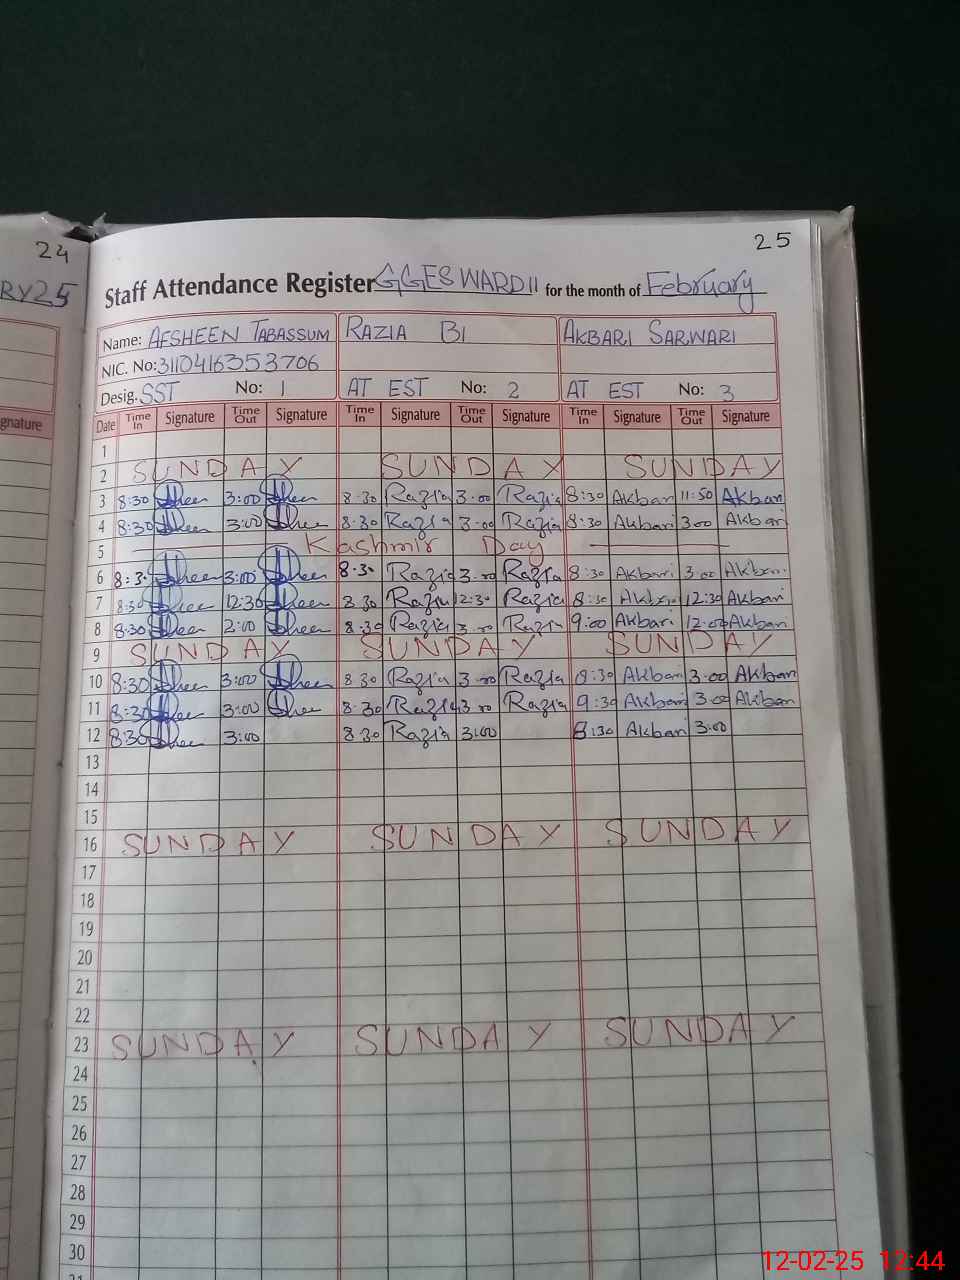 24
25
RY25
Staff Attendance Register GGES WARD 11 for the month of February
Name: AFSHEEN TABASSUM RAZIA BI AKBARI SARWARI
NIC. No: 3110416353706
Desig. SST No: 1 AT EST No: 2 AT EST No: 3
gnature Date Time In Signature Time Out Signature Time In Signature Time Out Signature Time In Signature Time Out Signature
1
2 SUNDAY SUNDAY SUNDAY
3 8:30 3:00 8:30 Razia 3:00 Razia 8:30 Akbari 11:50 Akbari
4 8:30 3:00 8:30 Razia 3:00 Razia 8:30 Akbari 3:00 Akbari
5 Kashmir Day
6 8:30 3:00 8:30 Razia 3:00 Razia 8:30 Akbari 3:00 Akbari
7 8:30 12:30 8:30 Razia 12:30 Razia 8:30 Akbari 12:30 Akbari
8 8:30 2:00 8:30 Razia Razia 9:00 Akbari 12:00 Akbari
9 SUNDAY SUNDAY SUNDAY
10 8:30 3:00 8:30 Razia 3:00 Razia Akbari 3:00 Akbari
11 8:30 3:00 8:30 Razia 3:00 Razia 9:30 Akbari 3:00 Akbari
12 8:30 3:00 8:30 Razia 3:00 8:30 Akbari 3:00
13
14
15
16 SUNDAY SUNDAY SUNDAY
17
18
19
20
21
22
23 SUNDAY SUNDAY SUNDAY
24
25
26
27
28
29
30
12-02-25 12:44